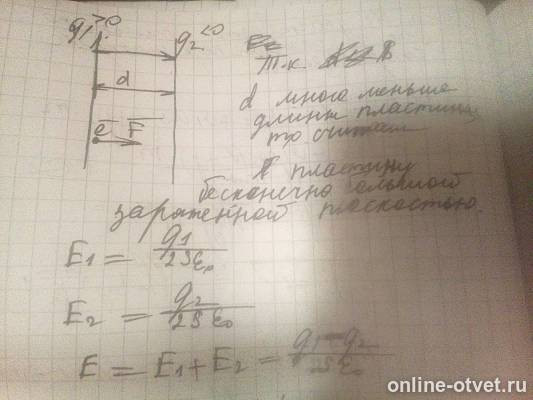 q₁>0
q₂<0
d
e⁻ F
Т.к.
d много меньше
длины пластины
то считаем
пластину
бесконечно большой
заряженной плоскостью.
E₁ = q₁/2Sε₀
E₂ = q₂/2Sε₀
E = E₁ + E₂ = q₁-q₂/2Sε₀
online-otvet.ru